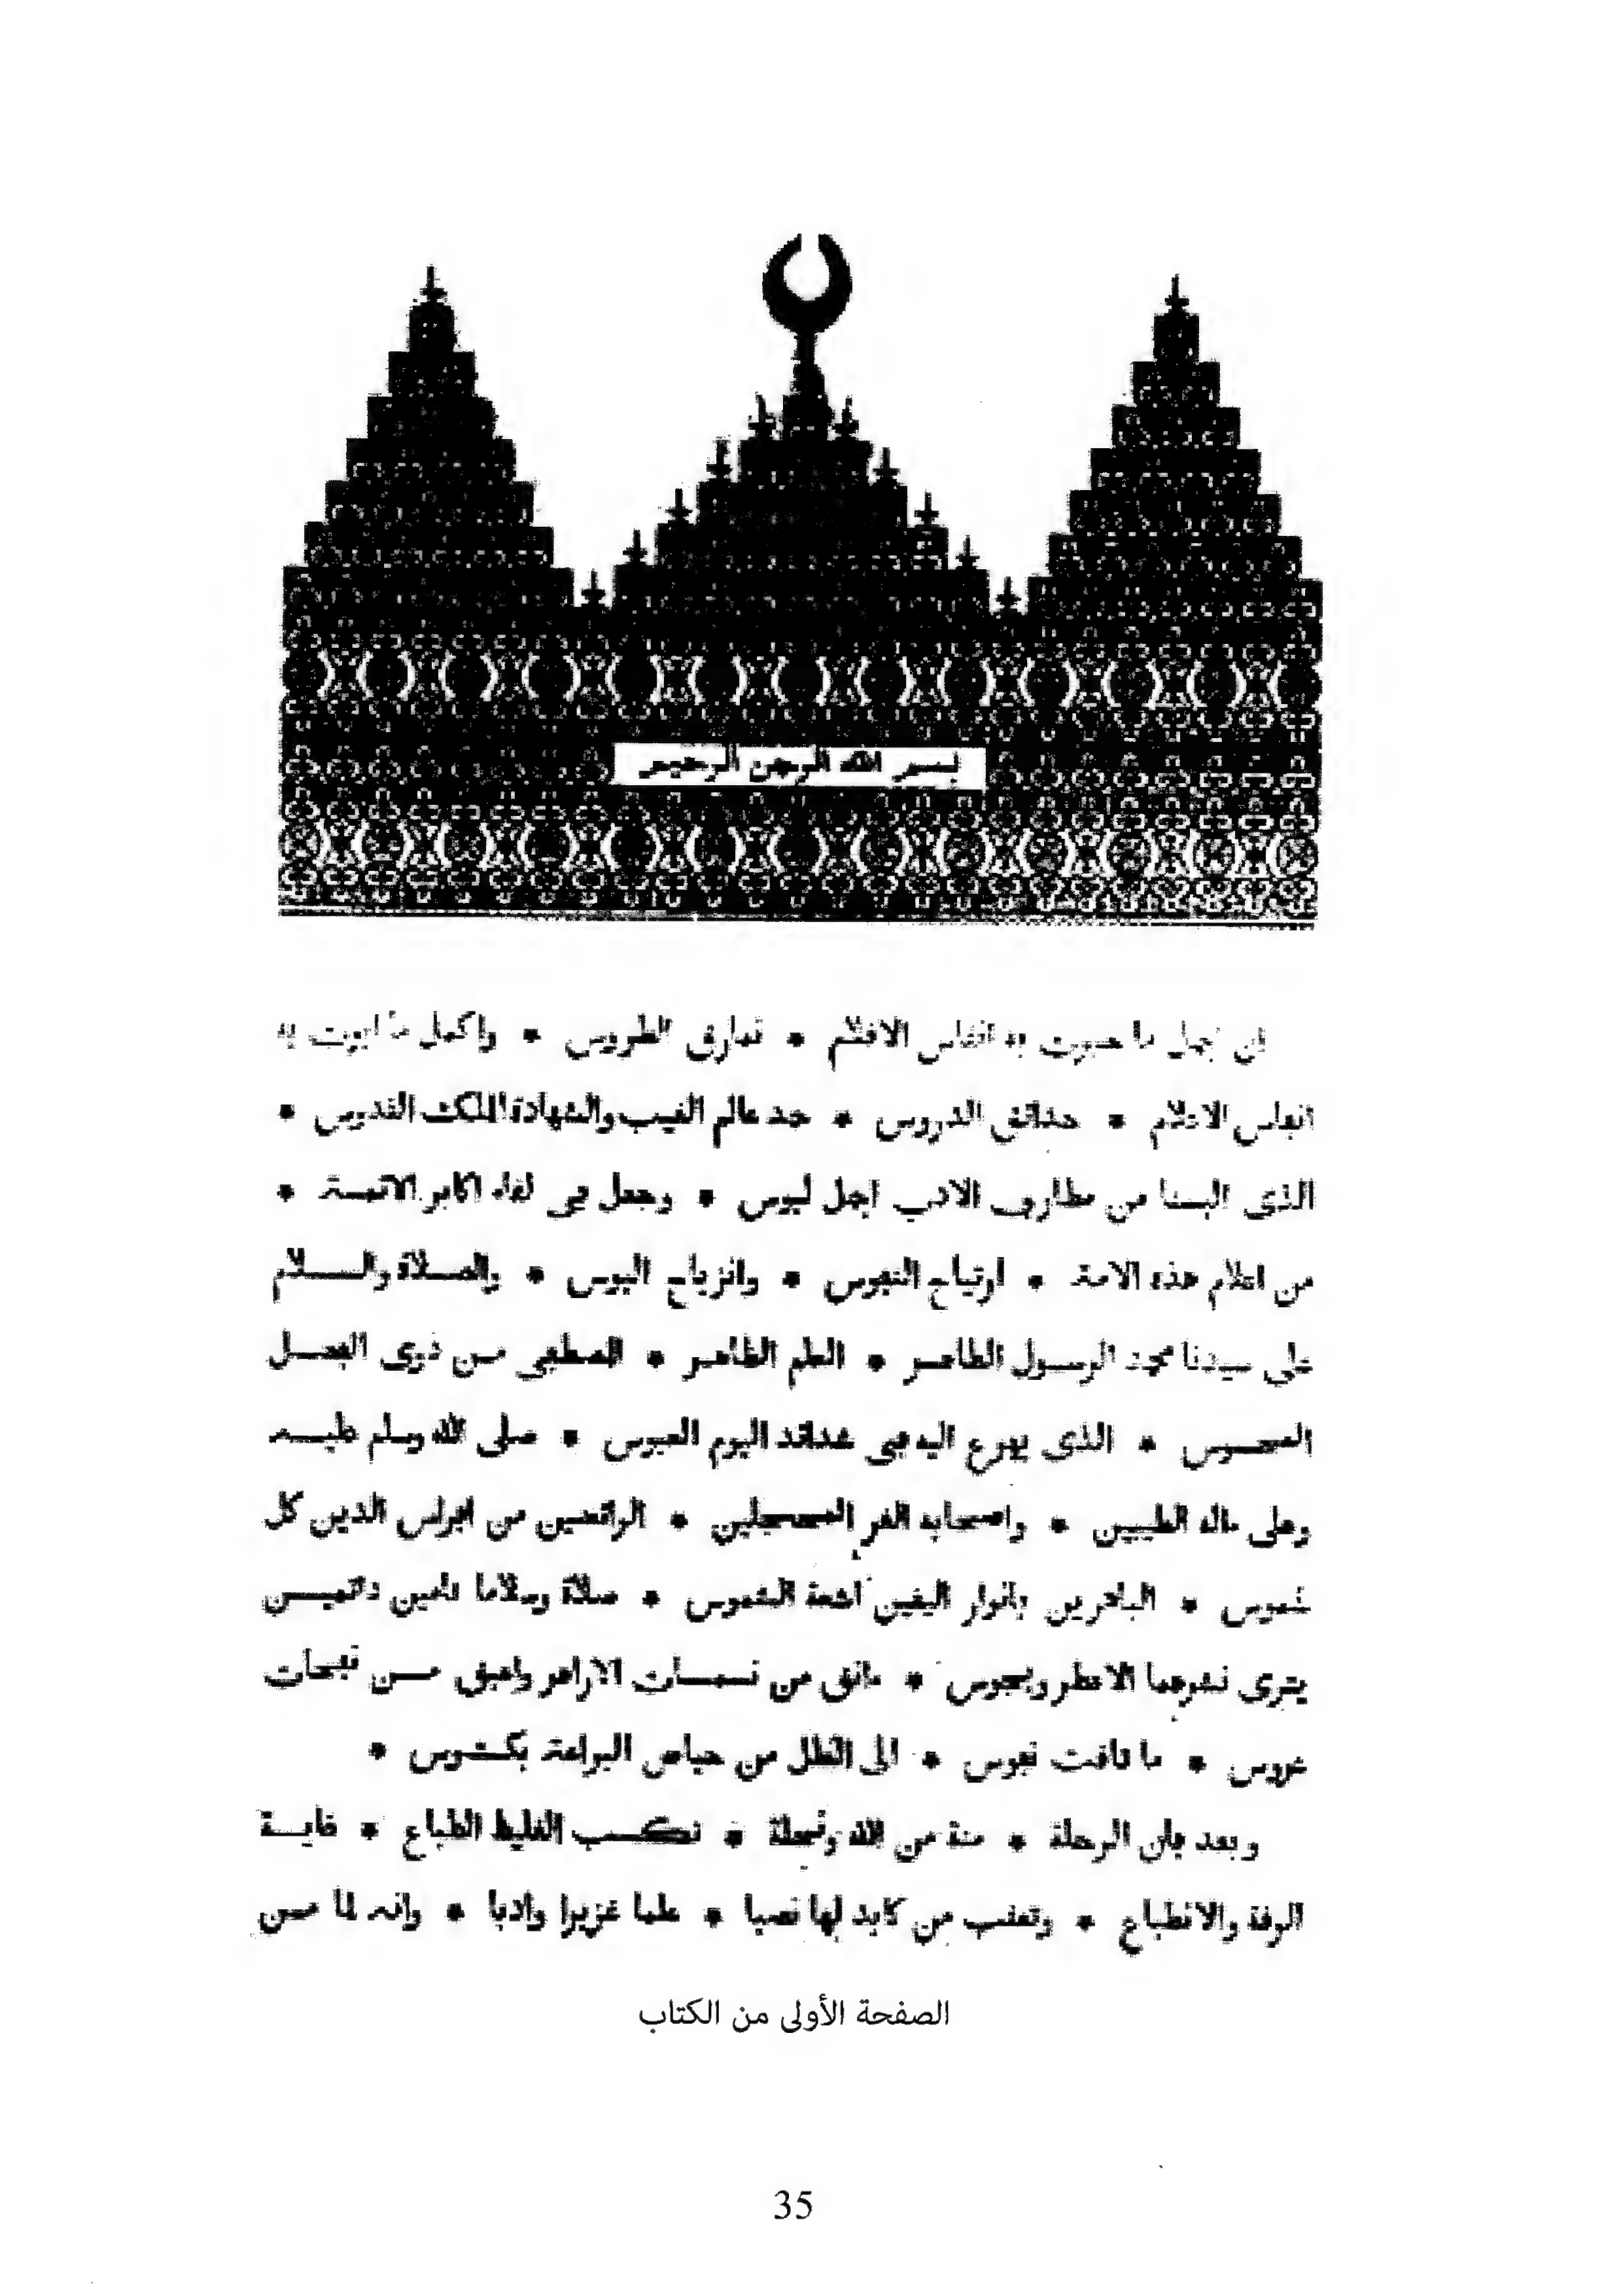 بسم الله الرحمن الرحيم
ان اجمل ما حبرت به انفاس الاقلام * نمارق الطروس * واكمل ما به
انفاس الاعلام * حدائق الدروس * حمد عالم الغيب والشهادة الملك القدوس *
الذى البسنا من مطارف الادب اجل لبوس * وجعل في لقاء اكابر الائمة *
من اعلام هذه الامة * ارتياح النفوس * وانزياح البوس * والصلاة والسلام
على سيدنا محمد الرسول الطاهر * العلم الظاهر * المصطفى من ذوى الفضل
المحسوس * الذى يهرع اليه في شدائد اليوم العبوس * صلى الله وسلم عليه
وعلى ءاله الطيبين * واصحابه الغر المحجلين * الرائضين من افراس الدين كل
شموس * الباهرين بانوار اليقين اشعة الشموس * صلاة وسلاما تامين دائمين
يترى نشرهما الاعطر ويجوس * ءانق من نسمات الازاهر واعبق من نفحات
عروس * ما تاقت نفوس * الى العلل من حياض البراعة بكئوس *
وبعد فان الرحلة * منة من الله ونحلة * تكسب الغليظ الطباع * غاية
الرقة والانطباع * وتعقب من كابد لها نصبا * علما غزيرا وادبا * وانه لما من
الصفحة الأولى من الكتاب
35